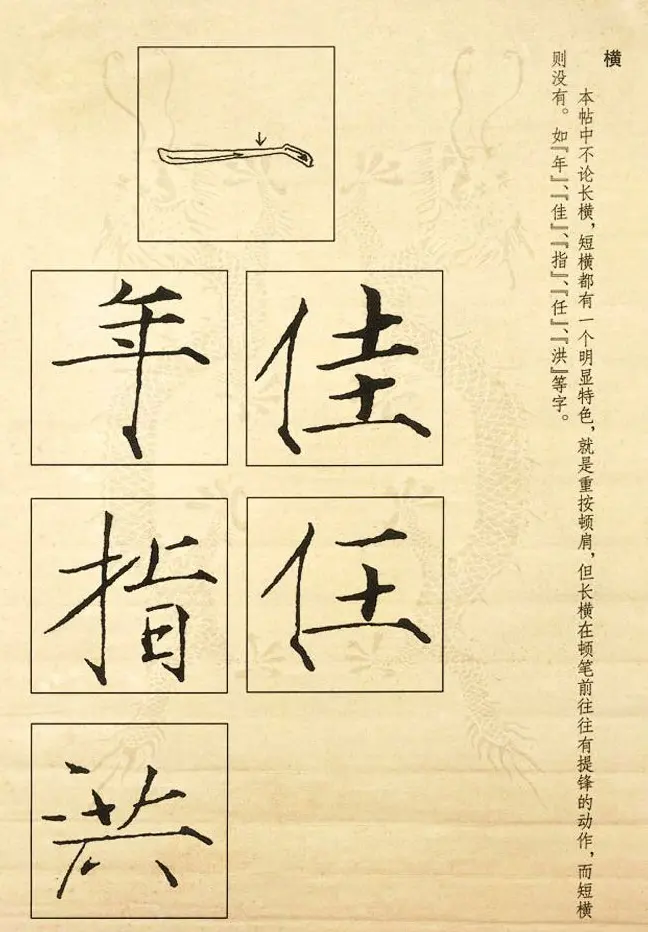 横
本帖中不论长横，短横都有一个明显特色，就是重按顿肩，但长横在顿笔前往往有提锋的动作，而短横
则没有。如『年』、『佳』、『指』、『任』、『洪』等字。
佳
年
任
指
洪